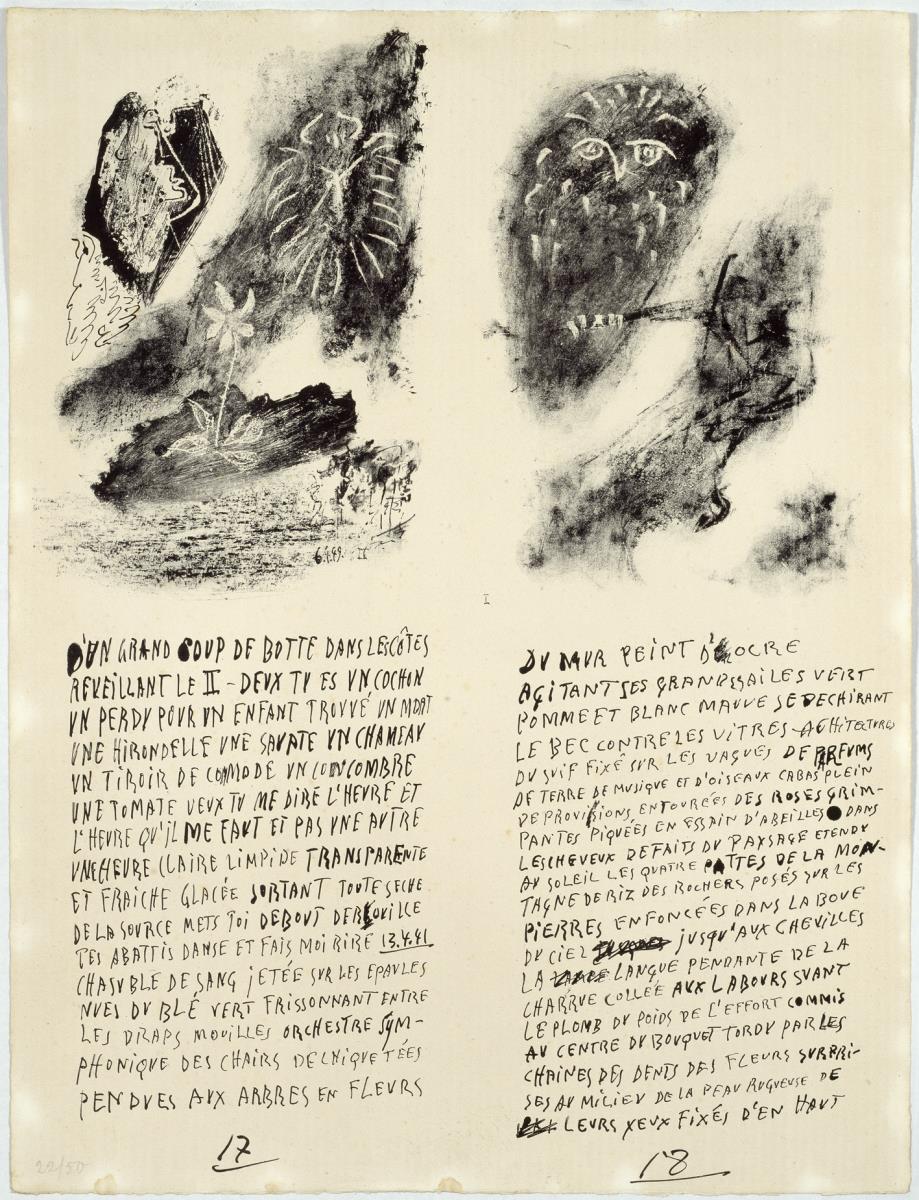 6.4.49. II
I
D'UN GRAND COUP DE BOTTE DANS LES CÔTES
REVEILLANT LE II - DEUX TU ES UN COCHON
UN PERDU POUR UN ENFANT TROUVÉ UN MORT
UNE HIRONDELLE UNE SAVATE UN CHAMEAU
UN TIROIR DE COMMODE UN CONCOMBRE
UNE TOMATE VEUX TU ME DIRE L'HEURE ET
L'HEURE QU'IL ME FAUT ET PAS UNE AUTRE
UNE HEURE CLAIRE LIMPIDE TRANSPARENTE
ET FRAICHE GLACÉE SORTANT TOUTE SECHE
DE LA SOURCE METS TOI DEBOUT DEROUILLE
TES ABATTIS DANSE ET FAIS MOI RIRE 13.4.41
CHASUBLE DE SANG JETÉE SUR LES EPAULES
NUES DU BLÉ VERT FRISSONNANT ENTRE
LES DRAPS MOUILLES ORCHESTRE SYM-
PHONIQUE DES CHAIRS DECHIQUETÉES
PENDUES AUX ARBRES EN FLEURS
17
DU MUR PEINT D'OCRE
AGITANT SES GRANDS AILES VERT
POMME ET BLANC MAUVE SE DECHIRANT
LE BEC CONTRE LES VITRES ACHITECTURES
DU SUIF FIXÉ SUR LES VAGUES DE PARFUMS
DE TERRE DE MUSIQUE ET D'OISEAUX CABAS PLEIN
DE PROVISIONS ENTOURÉES DES ROSES GRIM-
PANTES PIQUÉES EN ESSAIN D'ABEILLES DANS
LES CHEVEUX DEFAITS DU PAYSAGE ETENDU
AU SOLEIL LES QUATRE PATTES DE LA MON-
TAGNE DE RIZ DES ROCHERS POSÉS SUR LES
PIERRES ENFONCÉES DANS LA BOUE
DU CIEL JUSQU'AUX CHEVILLES
LA LANGUE PENDANTE DE LA
CHARRUE COLLÉE AUX LABOURS SUANT
LE PLOMB DU POIDS DE L'EFFORT COMMIS
AU CENTRE DU BOUQUET TORDU PAR LES
CHAINES DES DENTS DES FLEURS SURPRI-
SES AU MILIEU DE LA PEAU RUGUEUSE DE
LEURS YEUX FIXÉS D'EN HAUT
18
22/50